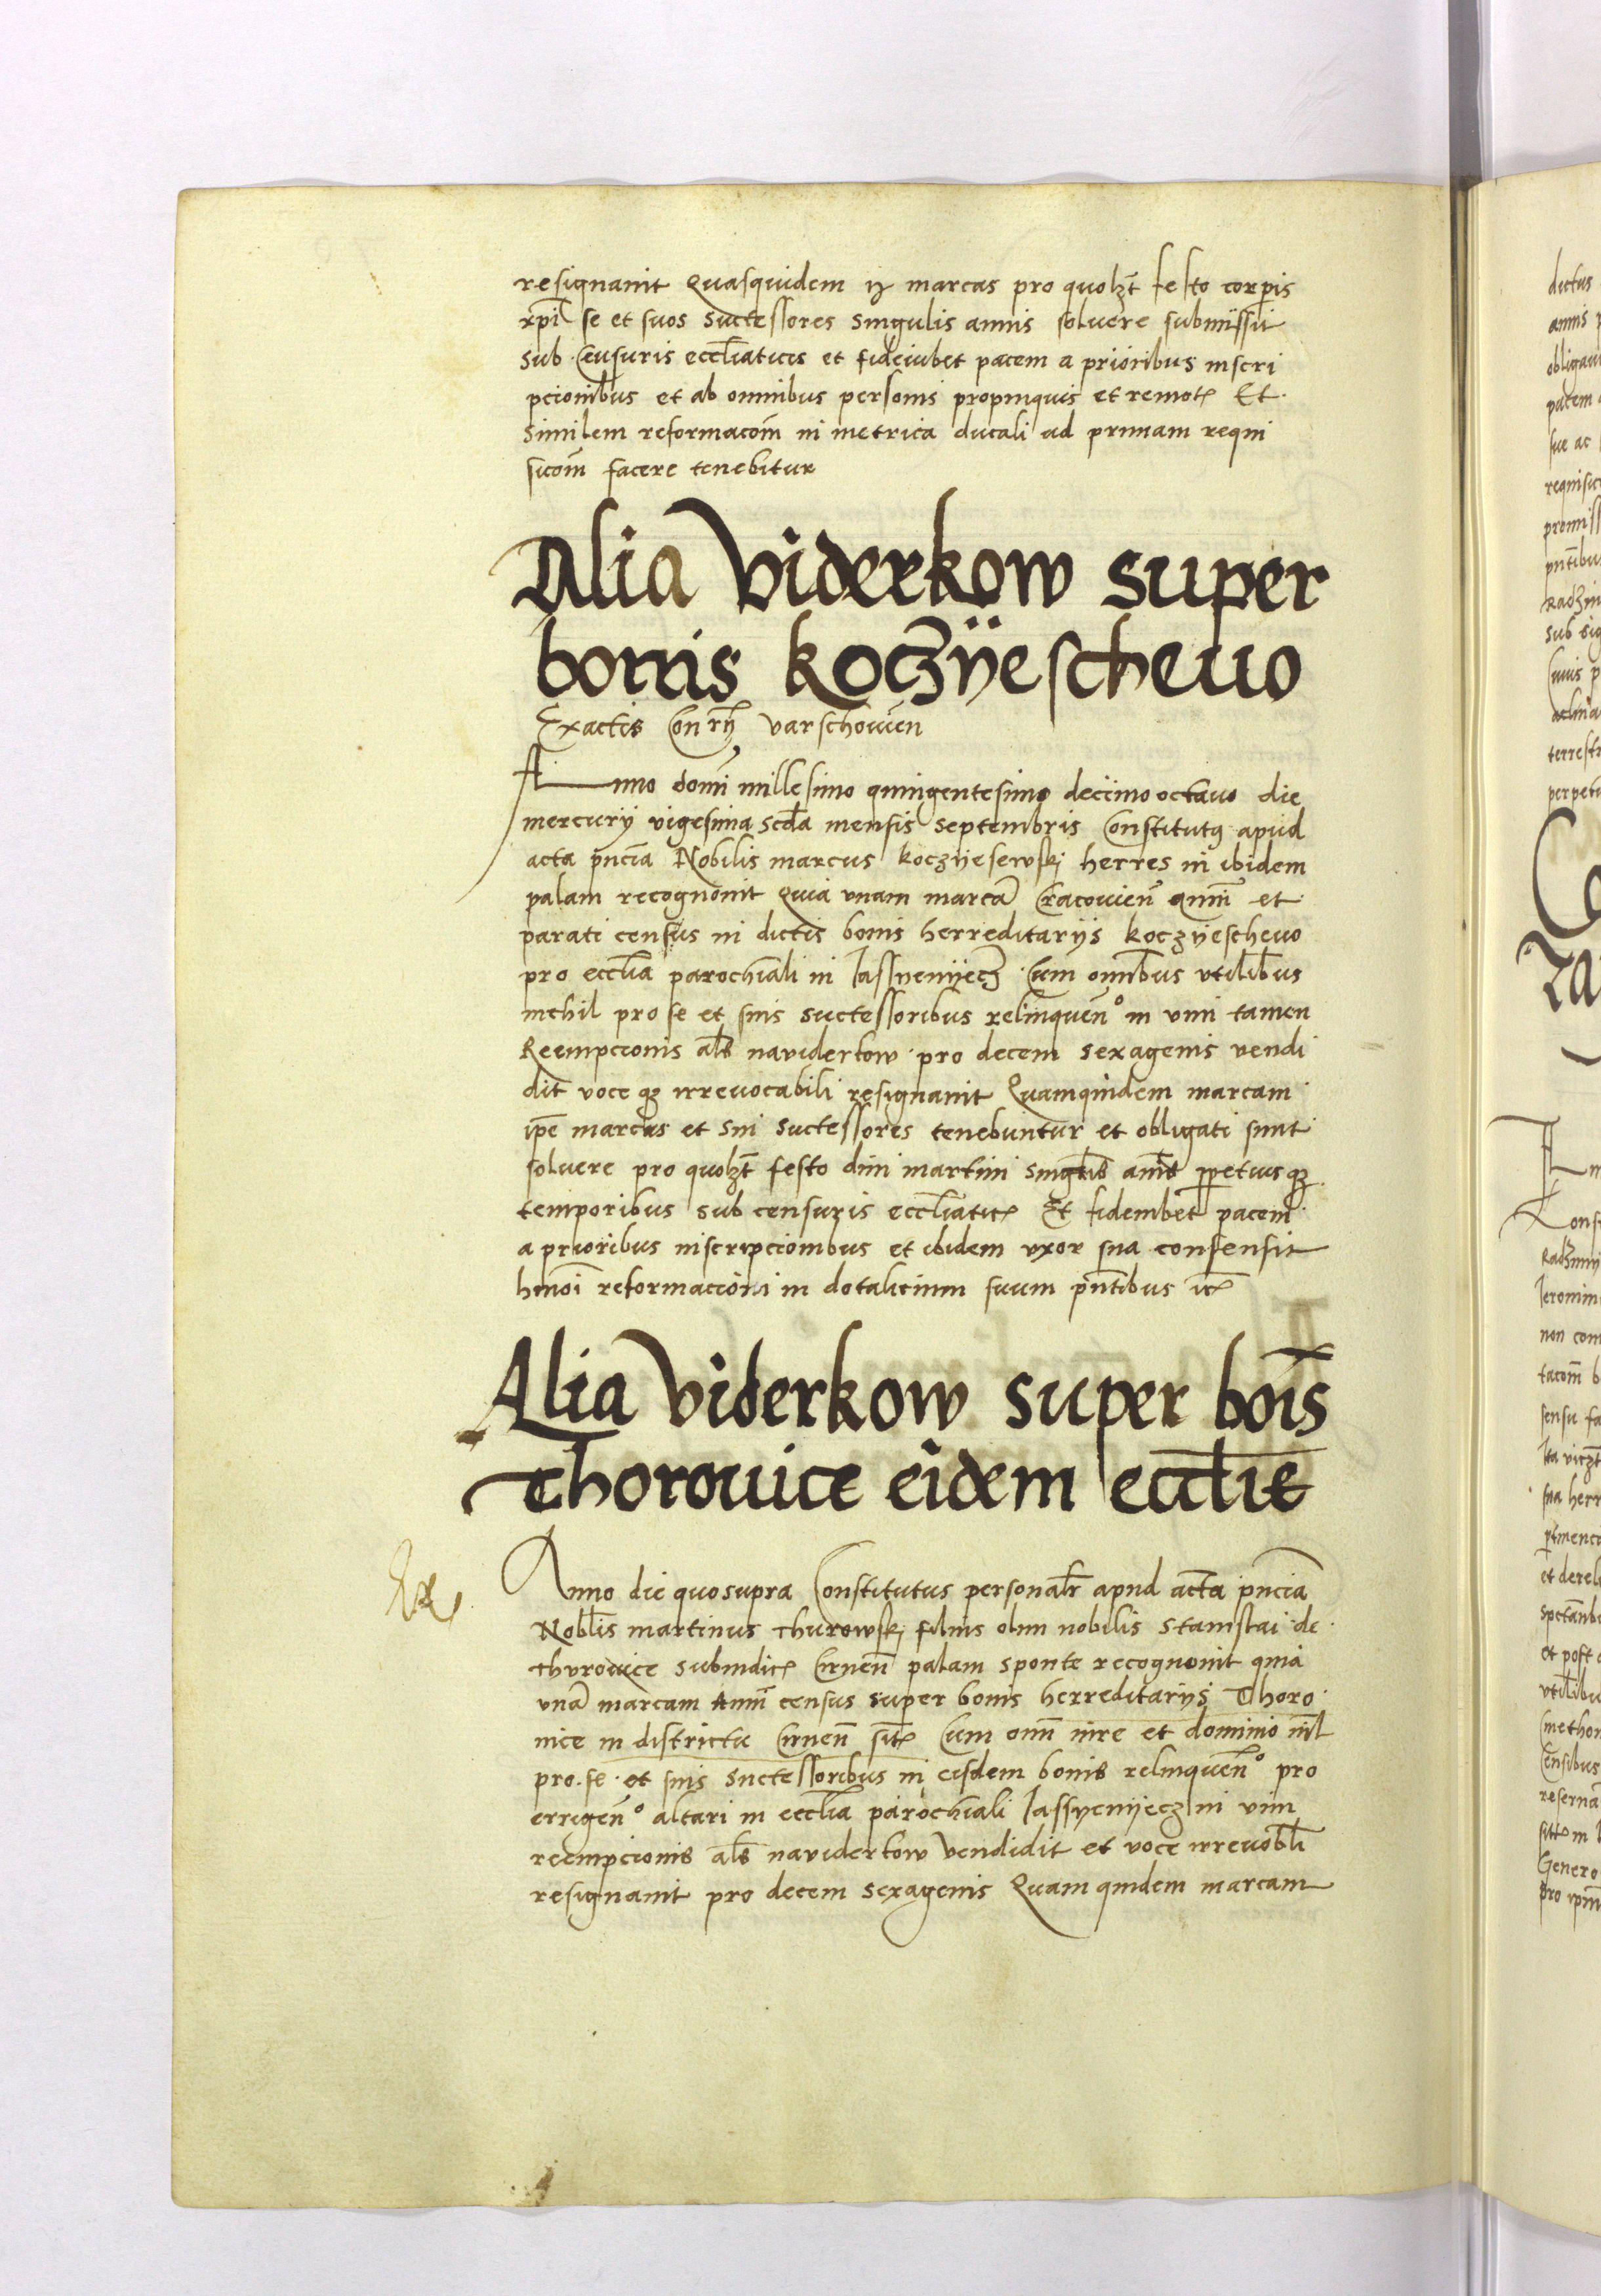 resignauit Quasquidem ij marcas pro quolꝫt festo corpis
xpi se et suos successores singulis annis soluere submissit
sub Censuris eccliaticis et fideiubet pacem a prioribus inscri
pcionibus et ab omnibus personis propinquis et remotꝭ Et
similem reformacom̄ in metrica ducali ad primam requi
sicom̄ facere tenebitur
Alia Viderkow super
bonis koczÿeschewo
Exactis Con rÿ varschowien
Anno domi millesimo quingentesimo decimo octauo die
mercurÿ vigesima scda mensis septembris Constitutꝯ apud
acta pncia Nobilis marcus koczÿesewskj herres in ibidem
palam recognouit Quia vnam marcā Cracouien̄ annui et
parati census in dictis bonis herreditariÿs koczÿeschevo
pro ecclia parochiali in Jassÿenÿecz Cum omnibus vtilibus
nichil pro se et suis successoribus relinquen̄º in vim tamen
Reempcionis als naviderkow pro decem sexagenis vendi
dit voce qꝫ irreuocabili resignauit Quamquidem marcam
ipe marcus et sui successores tenebuntur et obligati sunt
soluere pro quolꝫt festo diui martini singulis annis ppetuisqꝫ
temporibus sub censuris eccliaticꝭ Et fideiubet pacem
a prioribus inscripcionibus et ibidem vxor sua consensit
hmoi reformacioni in dotalicium suum pntibus icꝭ
Alia Viderkow super bois
Thorouice eidem ecclie
Anno die quo supra Constitutus personalr apud acta pncia
Noblis martinus thurowskj filius olim nobilis stanislai de
thvrovice subiudicꝭ Cirnen̄ palam sponte recognouit quia
vnā marcam Annui census super bonis herreditariÿs Thoro
uice in districtu Cirnen̄ sitꝭ Cum omni iure et dominio nil
pro se et suis successoribus in eisdem bonis relinquen̄º pro
errigen̄º altari in ecclia parochiali Jassÿenÿecz in vim
reempcionis als naviderkow vendidit et voce irreuobli
resignauit pro decem sexagenis Quam quidem marcam